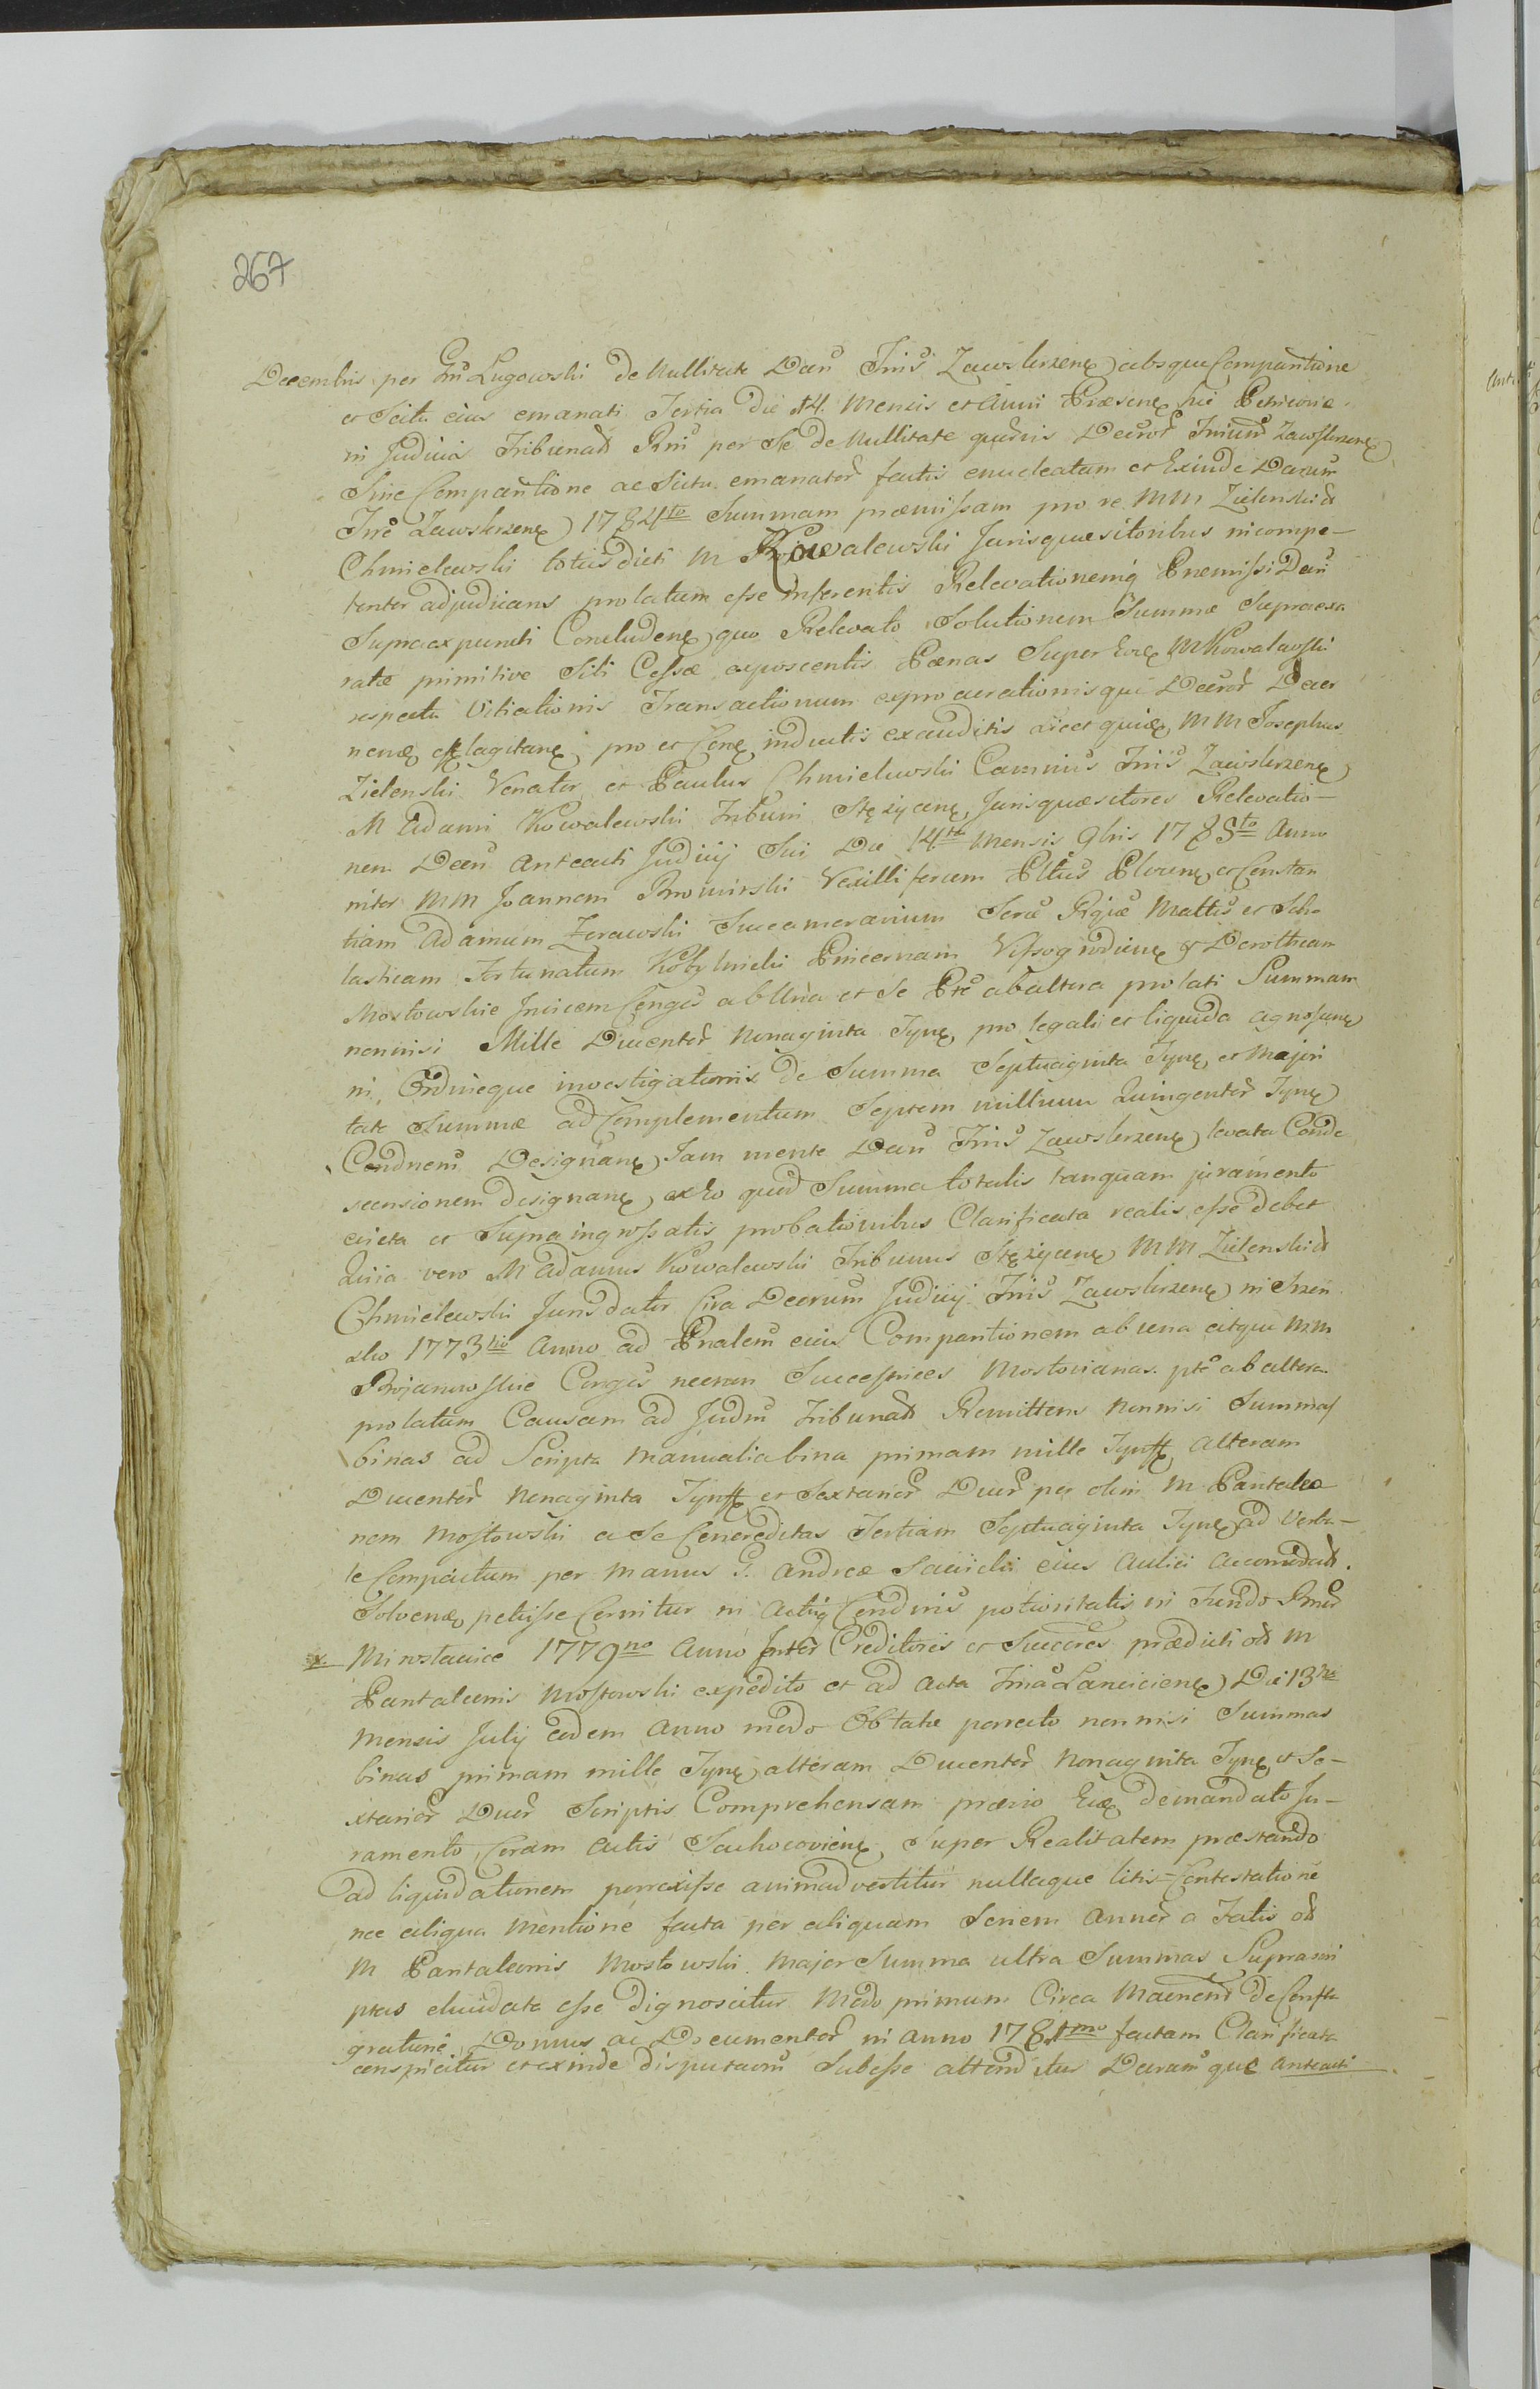 267
Decembris per Gn Lugowski de Nullitate Decri Trris Zawskrzenę absque Comparitione
et Scitu eius emanati Tertia die 14 Mensis et Anni Præsenę hic Petricoviæ
in Judicia Tribunał Rni per Se de Nullitate Decror Zawskrzenę
Sine Comparitione ac Scitu emanator factis enucleatum et Exinde
Zawskrzenę 1784to Summam præmissam pro re MM Zielenski &
Chmielewski totius dicti M Kowalewski Jurisquæsitoribus incompe-
tenter adjudicans prolatum esse inferentis Relevationemq Præmissi Decri
Supraexpuncti Concludenę quo Relevato Solutionem Summæ Supraexa
ratæ primitive Sibi Cessæ exposcentis Pænas Super M Kowalewski
respectu Vitiationis Transactionum Decror
efflagitanę pro et Conę inductis exauditis licet MM Josephus
Zielenski Venator et Paulus Chmielewski Camrius Trris Zawskrzenę
M Adami Kowalewski Tribuni Stężycenę Jurisquæsitores Relevatio-
nem Decri Anteacti Judicij Sui Die 14ta Mensis 9bris 1785to Anno
inter MM Joannem Bromirski Vexilliferum Plocenę et Constan
tiam Adamum Żerawski Succamerarium Mattis et Scho
lasticam Fortunatum Kobylnicki Pincernam Wyssogrodienę & Dorotheam
Mostowskie Invicem Congs ab Una et Se Pte ab altera prolati Summam
nonnisi Mille Ducentor Nonaginta Tynę pro legali et liquida agnoscenę
ni, Ordineque investigationis de Summa Septuaginta Tynę et Majori
tate Summæ ad Complementum Septem millium Quingentor Tynę
Designanę Jam mente Decri Trris Zawskrzenę levata Conde
scensionem designanę ex eo quod Summa totalis tanquam juramento
evicta et Supra ingrossatis probationibus Clarificata realis esse debet
Quia vero M Adamus Kowalewski Tribunus Stężycenę MM Zielenski &
Chmielewski Jurisdator Circa Decrum Judicij Trris Zawskrzenę in Szren
sko 1773tio Anno ad Pnalem eius Comparitionem ab una atque MM
Bojanowskie Congs necnon Successrices Mostovianas pte ab altera
prolatum Causam ad Judm Tribunał Remittens Nonnisi Summas
binas ad Scripta Manualia bina primam mille Tynff alteram
Ducentor Nonaginta Tynff et Sextanor Duor per olim M Pantaleo
nem Mostowski a Se Concreditas Tertiam Septuaginta Tynę ad Verba-
le Compactum per Manus G. Andreæ Sawicki eius Aulici Accomodał
Solvenę petiisse Cernitur in Actuq potioritatis in Fundo
x Miroslawice 1779no Anno Inter Creditores et Succeres prædicti oł M
Pantaleonis Mostowski expedito et ad Acta Lanciciensę Die 13tia
Mensis Julij eodem Anno modo Oblatæ porrecto nonnisi Summas
binas primam mille Tynę alteram Ducentor Nonaginta Tynę et Se-
xtanor Duor Scriptis Comprehensam prævio demandato Ju-
ramento, Coram Actis Sochoczovienę Super Realitatem præstando
ad liquidationem porrexisse animadvertitur nullaque litis-Contestatione
nec aliqua Mentione facta per aliquam Seriem Annor a Fatis oł
M Pantaleonis Mostowski Major Summa ultra Summas Suprascri
ptas elucidata esse dignoscitur Modo primum Circa Conflа
gratione Domus ac Documentor in Anno 1781mo factam Clarificata
conspicitur et exinde Subesse attenditur Decrumque Anteacti